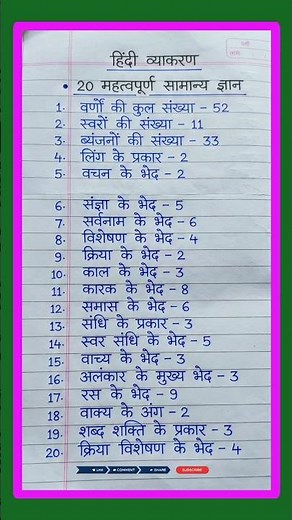 हिंदी व्याकरण
• 20 महत्वपूर्ण सामान्य ज्ञान
1. वर्णों की कुल संख्या – 52
2. स्वरों की संख्या – 11
3. व्यंजनों की संख्या – 33
4. लिंग के प्रकार – 2
5. वचन के भेद – 2
6. संज्ञा के भेद – 5
7. सर्वनाम के भेद – 6
8. विशेषण के भेद – 4
9. क्रिया के भेद – 2
10. काल के भेद – 3
11. कारक के भेद – 8
12. समास के भेद – 6
13. संधि के प्रकार – 3
14. स्वर संधि के भेद – 5
15. वाच्य के भेद – 3
16. अलंकार के मुख्य भेद – 3
17. रस के भेद – 9
18. वाक्य के अंग – 2
19. शब्द शक्ति के प्रकार – 3
20. क्रिया विशेषण के भेद – 4
LIKE COMMENT SHARE SUBSCRIBE